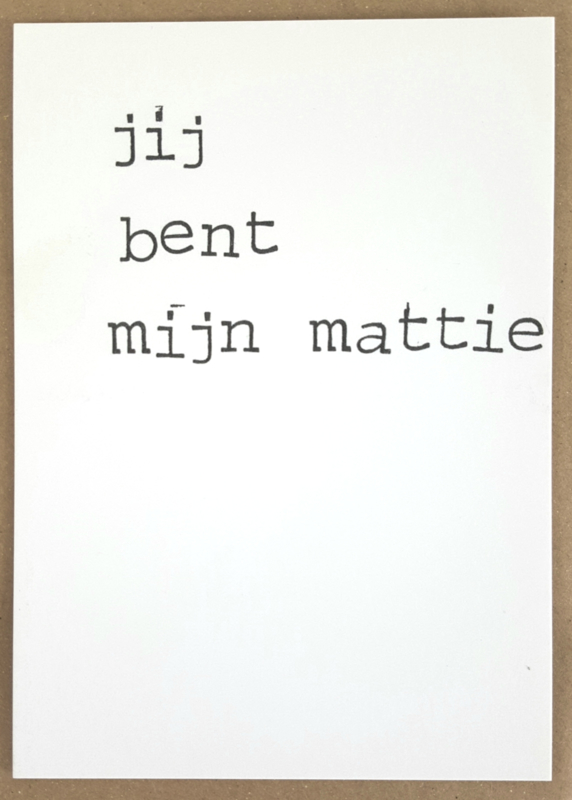 jij
bent
mijn mattie